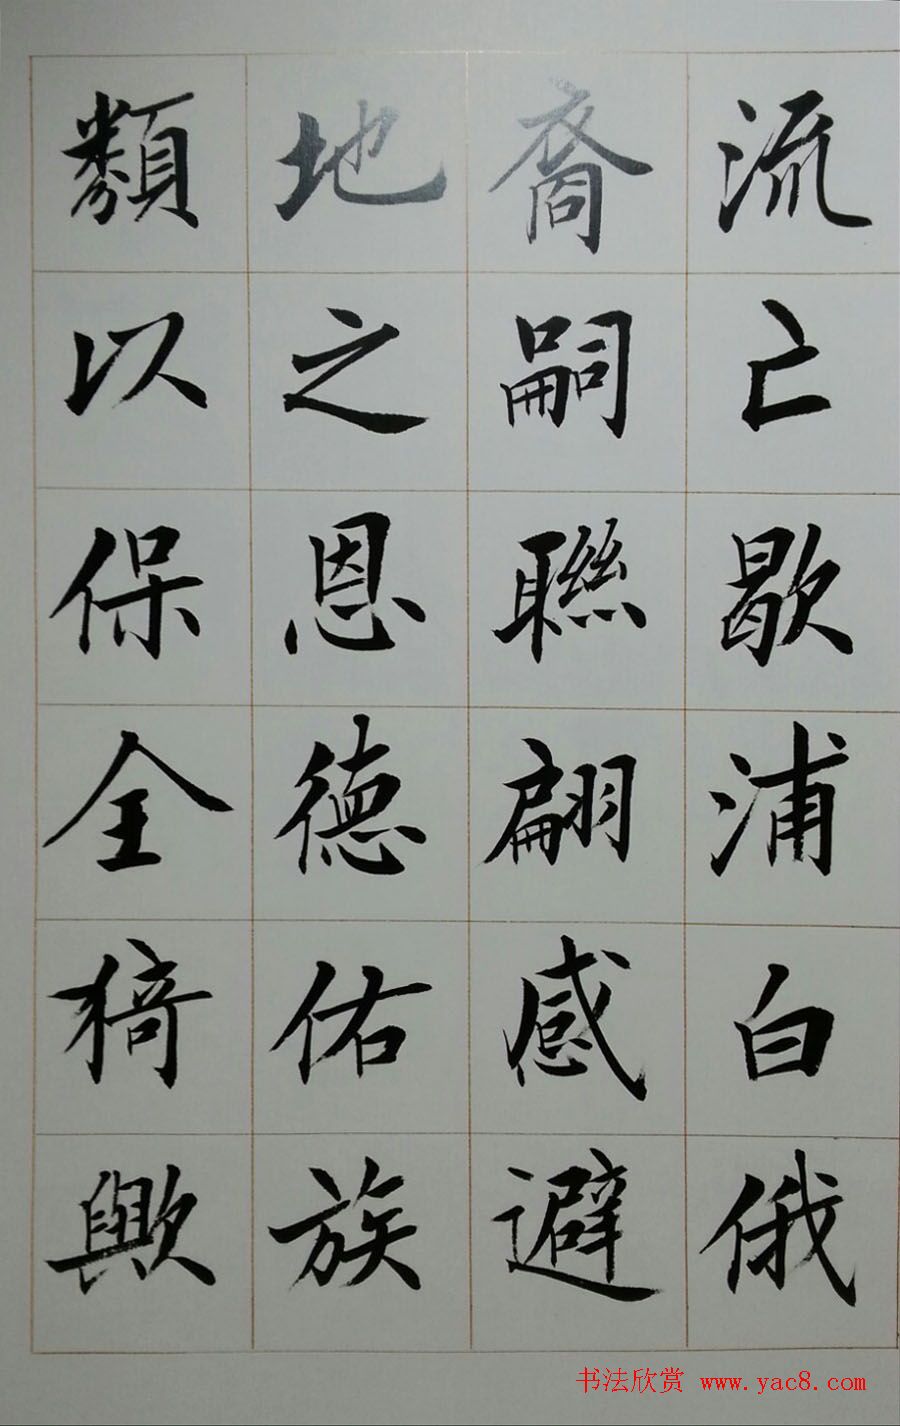 流亡歇浦白俄
裔嗣聯翩感避
地之恩德佑族
類以保全猗歟
书法欣赏 www.yac8.com